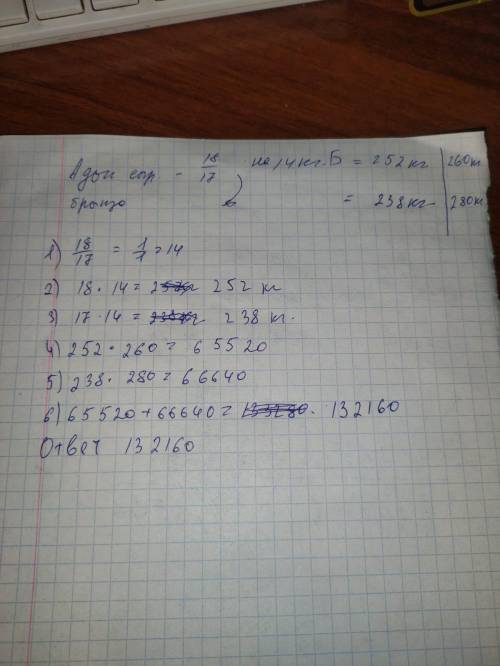 Адыг сыр. - 18/17 на 14 кг. Б = 252 кг. 260
брынза = 238 кг 280
1) 18/17 = 1/1 = 14
2) 18 · 14 = 252 кг
3) 17 · 14 = 238 кг.
4) 252 · 260 = 65520
5) 238 · 280 = 66640
6) 65520 + 66640 = 132160
Ответ 132160